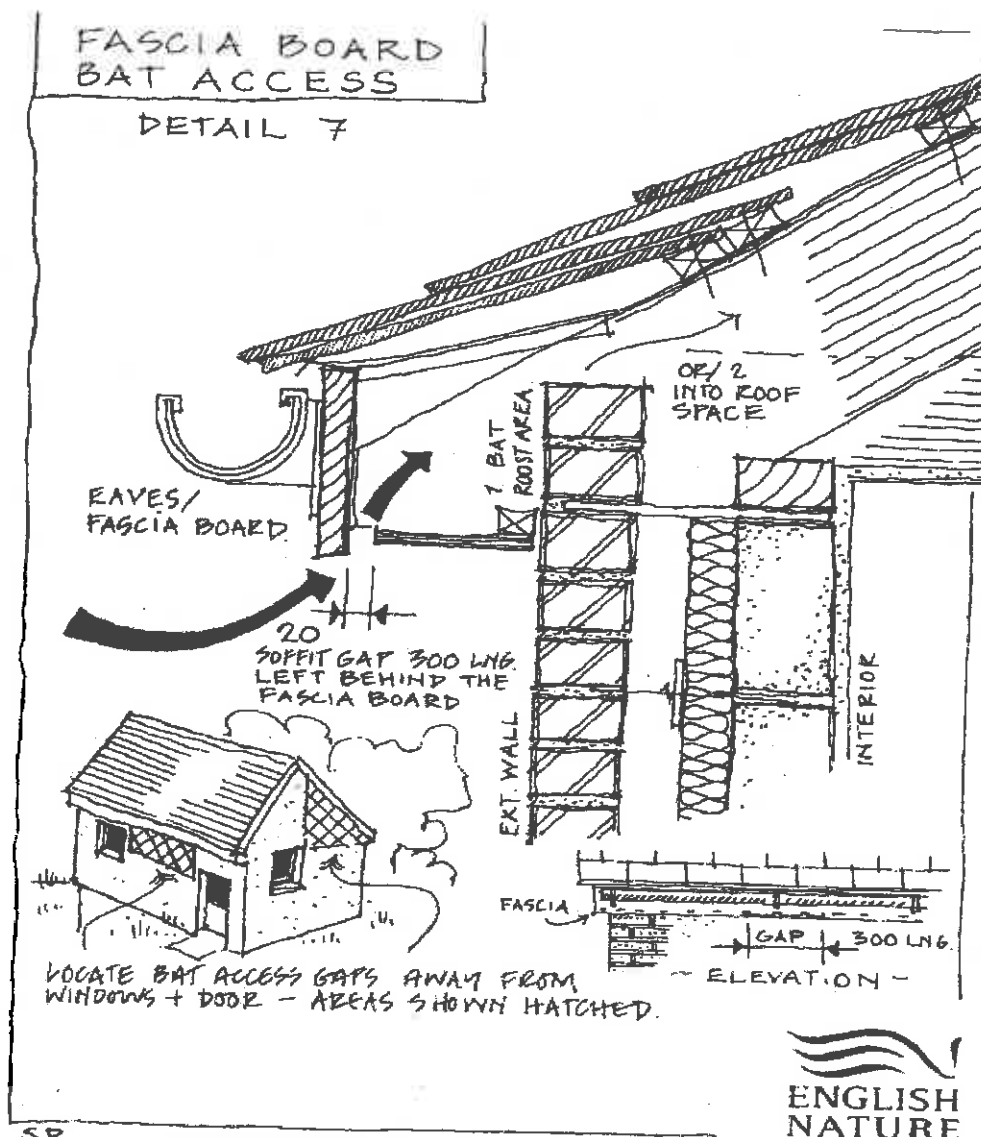 FASCIA BOARD
BAT ACCESS
DETAIL 7
OR/2
INTO ROOF
SPACE
1 BAT
ROOST AREA
EAVES/
FASCIA BOARD
20
SOFFIT GAP 300 LNG.
LEFT BEHIND THE
FASCIA BOARD
EXT. WALL
INTERIOR
FASCIA
GAP 300 LNG.
- ELEVATION -
LOCATE BAT ACCESS GAPS AWAY FROM
WINDOWS + DOOR - AREAS SHOWN HATCHED.
ENGLISH
NATURE
SR